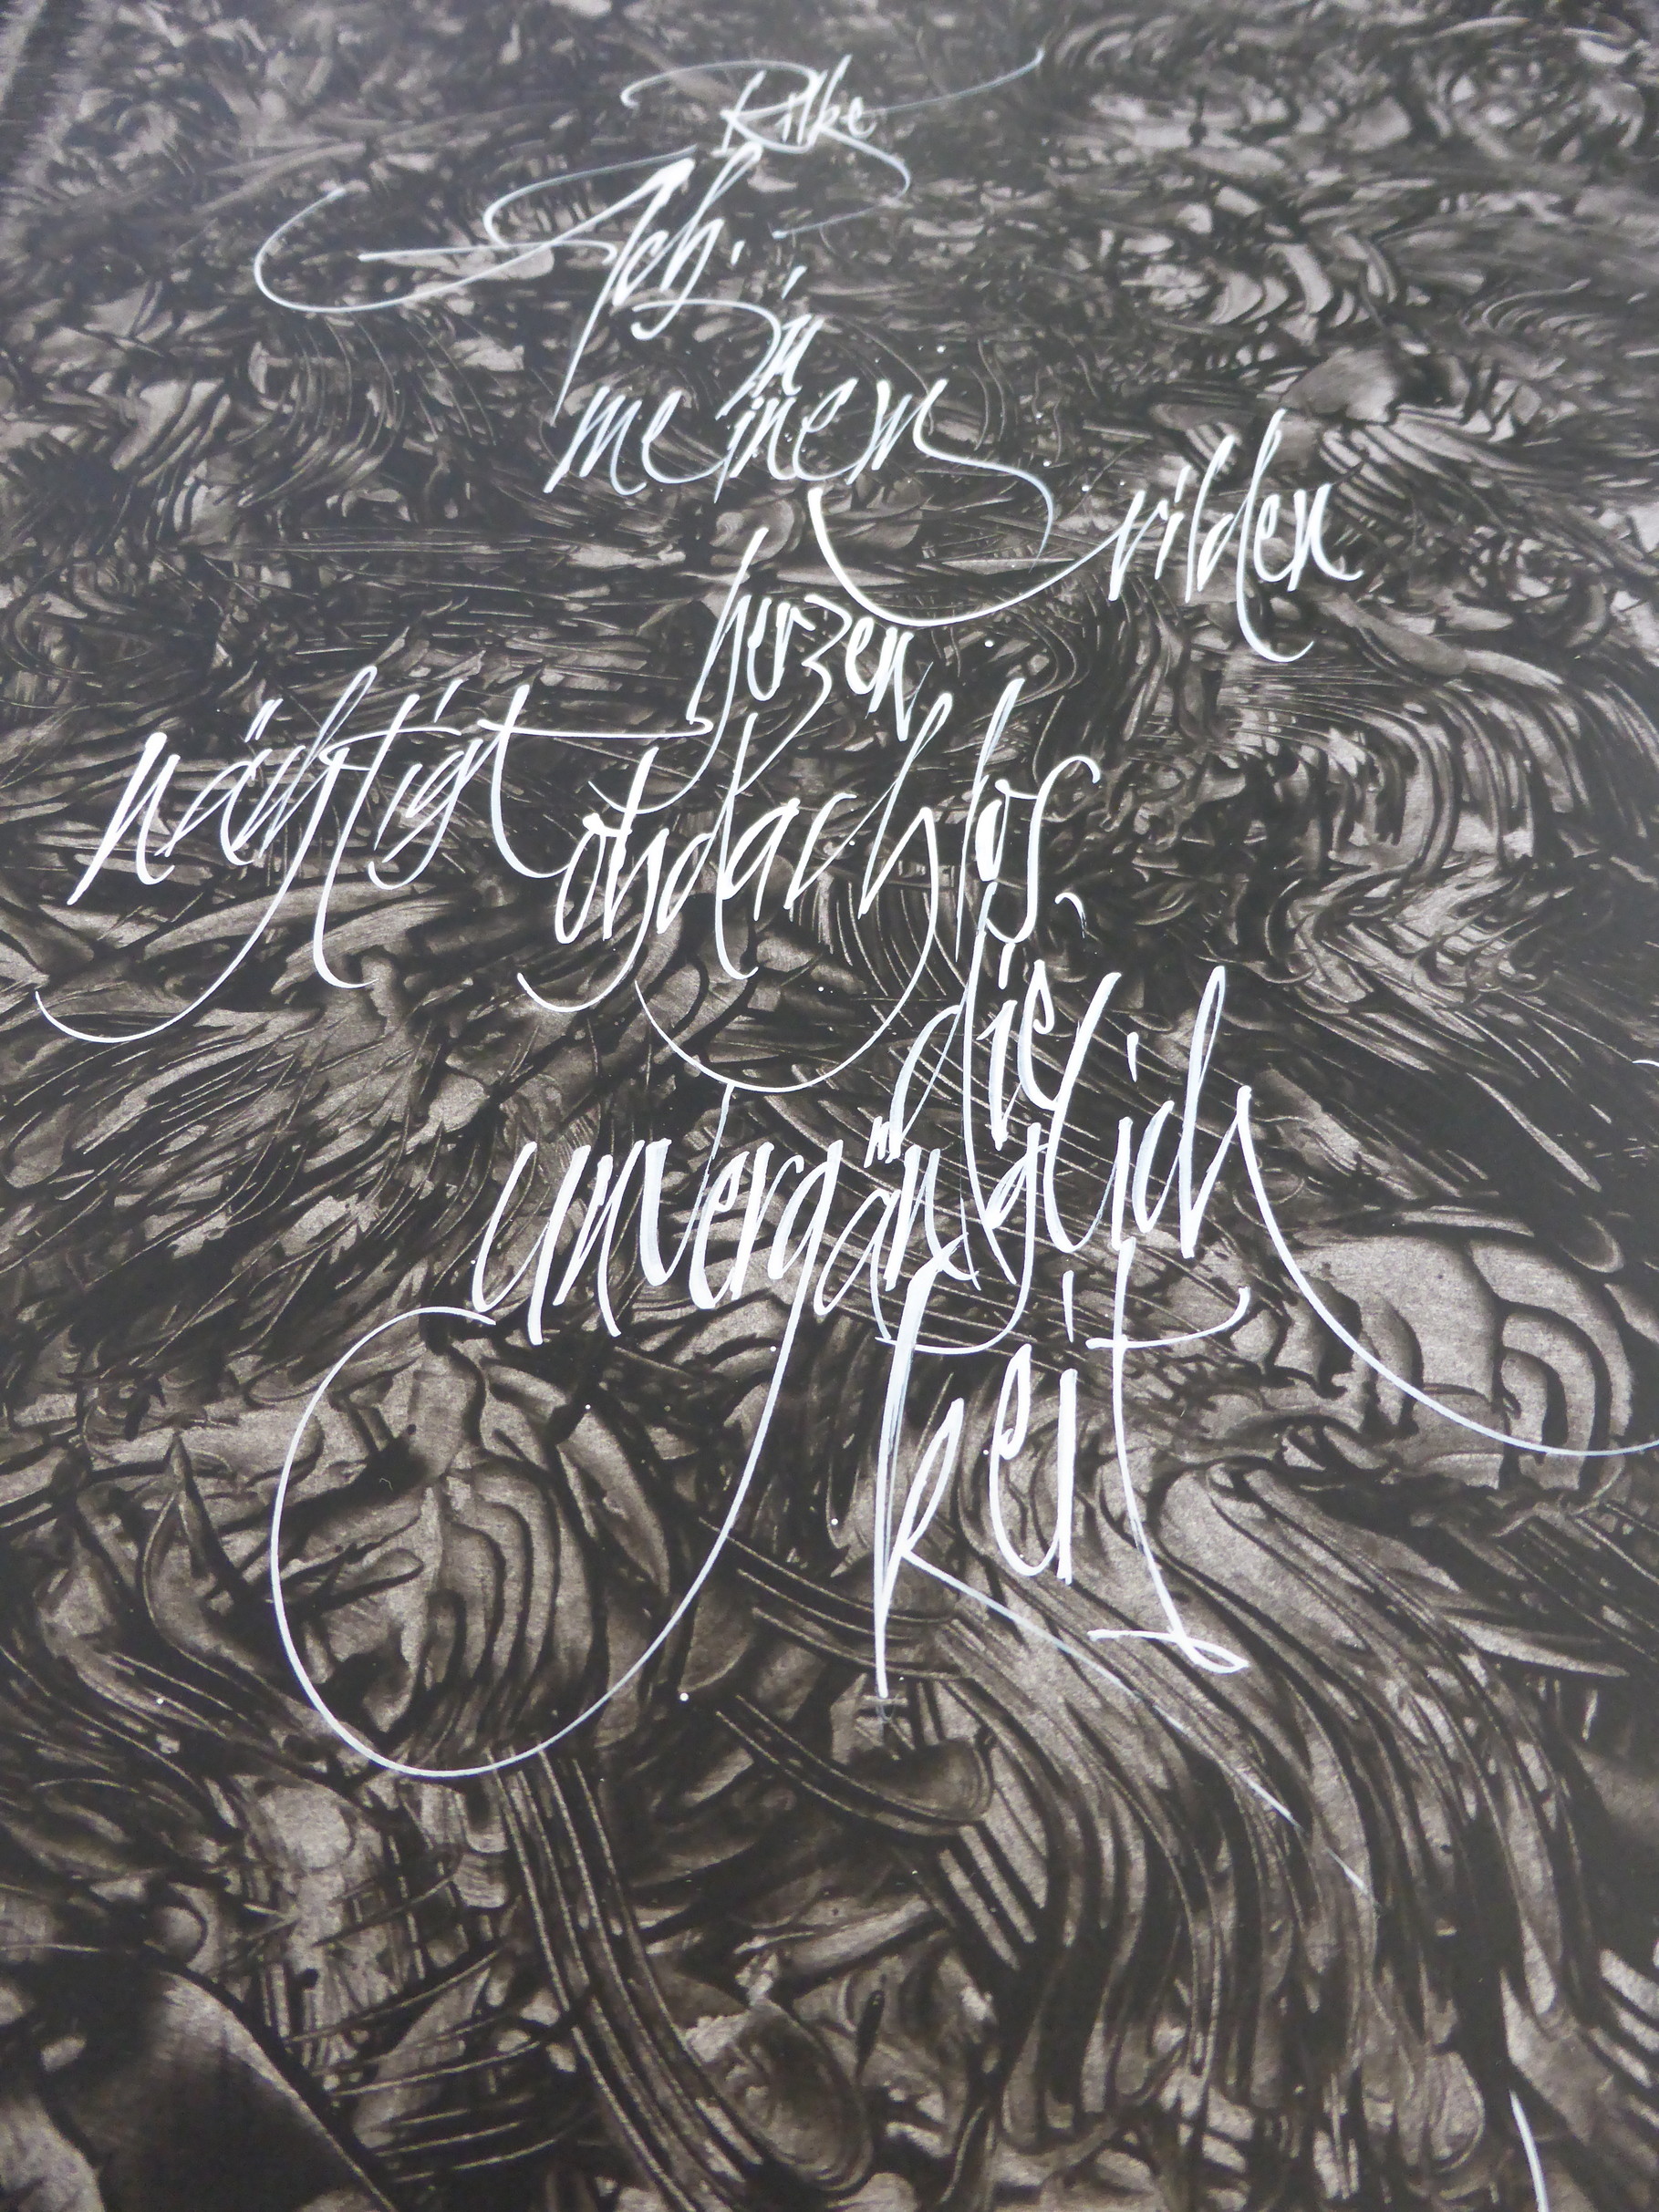 Rilke
Ach,
in
meinem wilden
herzen
nächtigt obdachlos
die
unvergänglich
keit